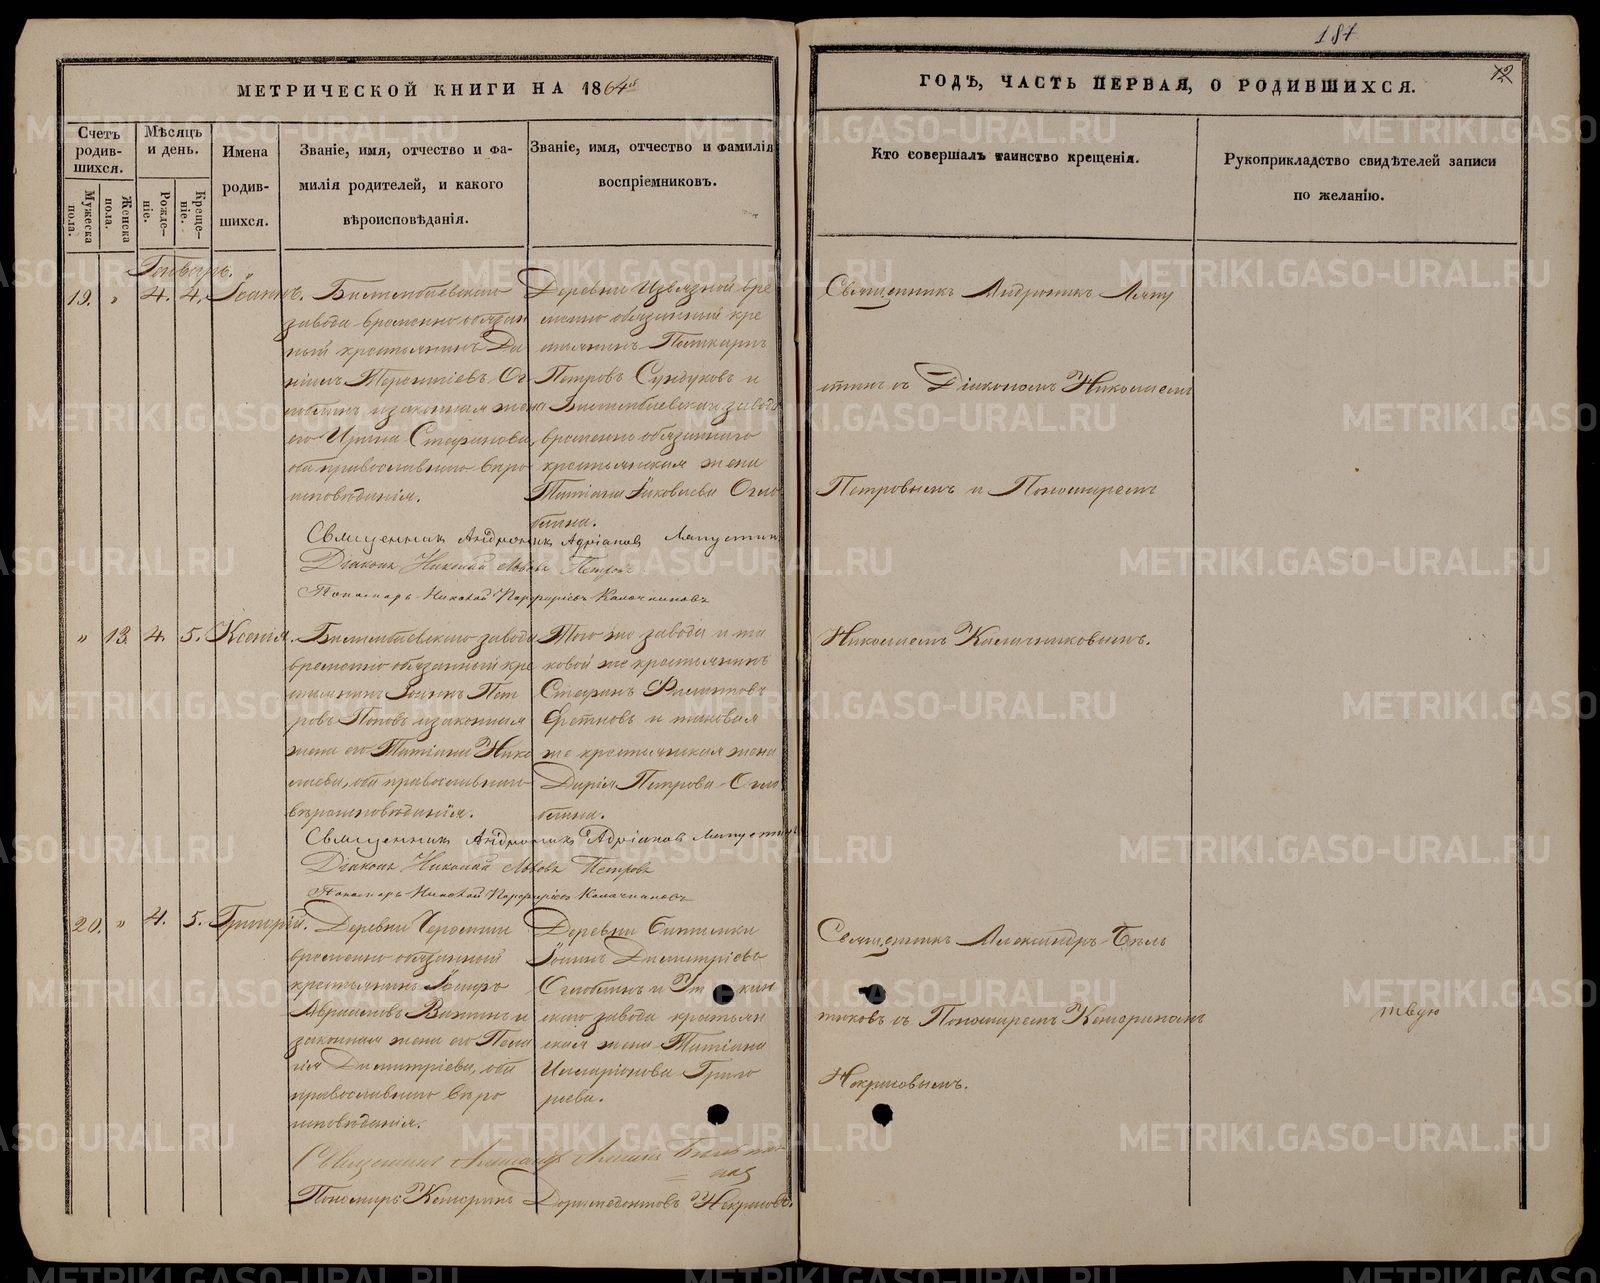 187
12
МЕТРИЧЕСКОЙ КНИГИ НА 1864й
ГОДѢ, ЧАСТЬ ПЕРВАЯ, О РОДИВШИХСЯ.
Счетъ родив-
шихся.
Мѣсяцъ
и день.
Мужеска пола.
Женска пола.
Рожде-
ніе.
Креще-
ніе.
Имена
родив-
шихся.
Званіе, имя, отчество и фа-
милія родителей, и какого
вѣроисповѣданія.
Званіе, имя, отчество и фамилія
воспріемниковъ.
Кто совершалъ таинство крещенія.
Рукоприкладство свидѣтелей записи
по желанію.
Генварь.
19. „ 4. 4. Іоаннъ.
Билимбаевскаго
завода временно обязан
ный крестьянинъ Да
ніилъ Терентіевъ Ог
лоблинъ и законная жена
его Ирина Стефанова,
оба православнаго вѣро
исповѣданія.
Деревни Извязной вре
менно обязанный кре
стьянинъ Поликарпъ
Петровъ Сундуковъ и
Билимбаевскаго завода
временно обязаннаго
крестьянская жена
Татіана Яковлева Огло
блина.
Священникъ Андроникъ Лапу
стинъ съ Діакономъ Николаемъ
Петровымъ и Пономаремъ
Николаемъ Калачниковымъ.
Священник Андроник Адріанов Лапустин
Діаконъ Николай Львовъ Петровъ
Пономарь Николай Порфиріевъ Калачниковъ
„ 13. 4. 5. Ксенія.
Билимбаевскаго завода
временно обязанный кре
стьянинъ Іоаннъ Пет
ровъ Поповъ и законная
жена его Татіана Нико
лаева, оба православнаго
вѣроисповѣданія.
Того же завода и та
ковой же крестьянинъ
Стефанъ Филипповъ
и таковая
же крестьянская жена
Дарія Петрова Огло
блина.
Священник Андроник Адріанов Лапустин
Діаконъ Николай Львовъ Петровъ
Пономарь Николай Порфиріевъ Калачниковъ
20. „ 4. 5. Григорій.
Деревни Черемши
временно обязанный
крестьянинъ
Авраамовъ Вахнинъ и
законная жена его Пела
гія Димитріева, оба
православнаго вѣро
исповѣданія.
Деревни
Іоаннъ Димитріевъ
Оглоблинъ и Ут кин
скаго завода крестьян
ская жена Татіана
Илларіонова Григо
рьева.
Священникъ Александръ Бѣль
тюковъ съ Пономаремъ Кенсориномъ
Некрасовымъ.
твую
Священникъ Александръ
Пономарь Кенсоринъ Доримедонтовъ Некрасовъ.
METRIKI.GASO-URAL.RU